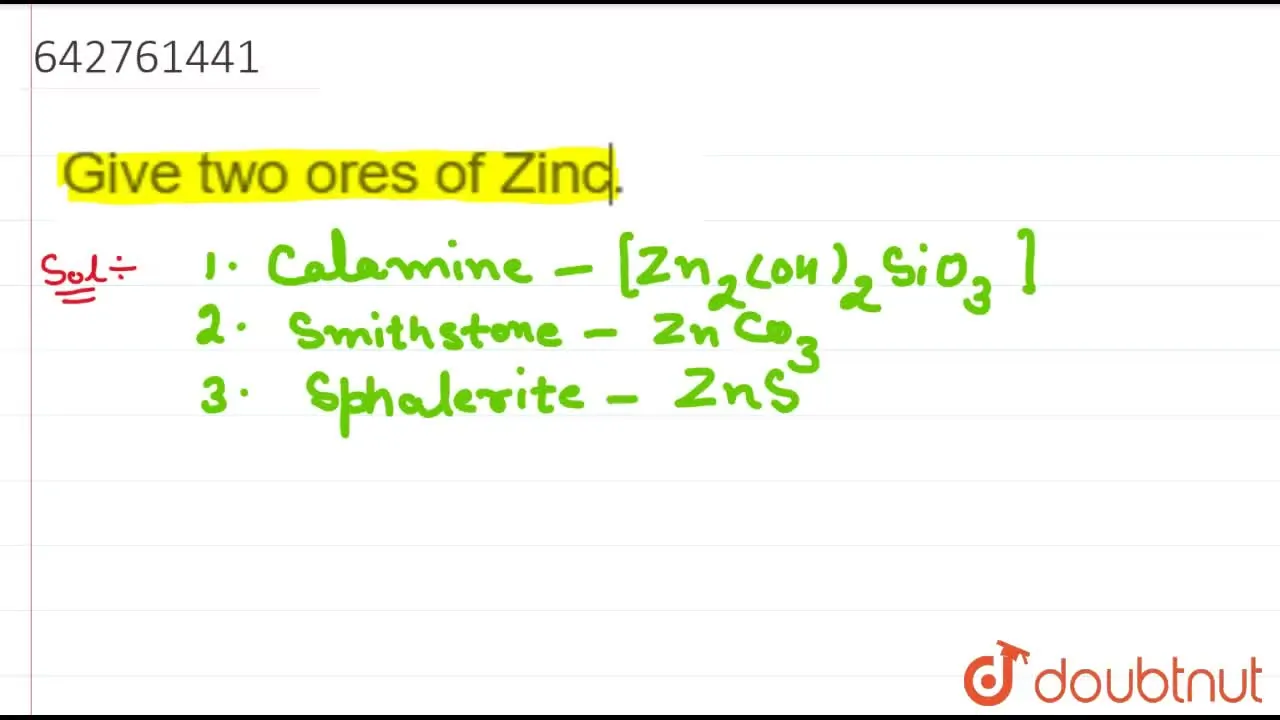 642761441
Give two ores of Zinc.
Sol ÷ 1. Calamine - [Zn₂(OH)₂SiO₃]
2. Smithstone - ZnCO₃
3. Sphalerite - ZnS
doubtnut